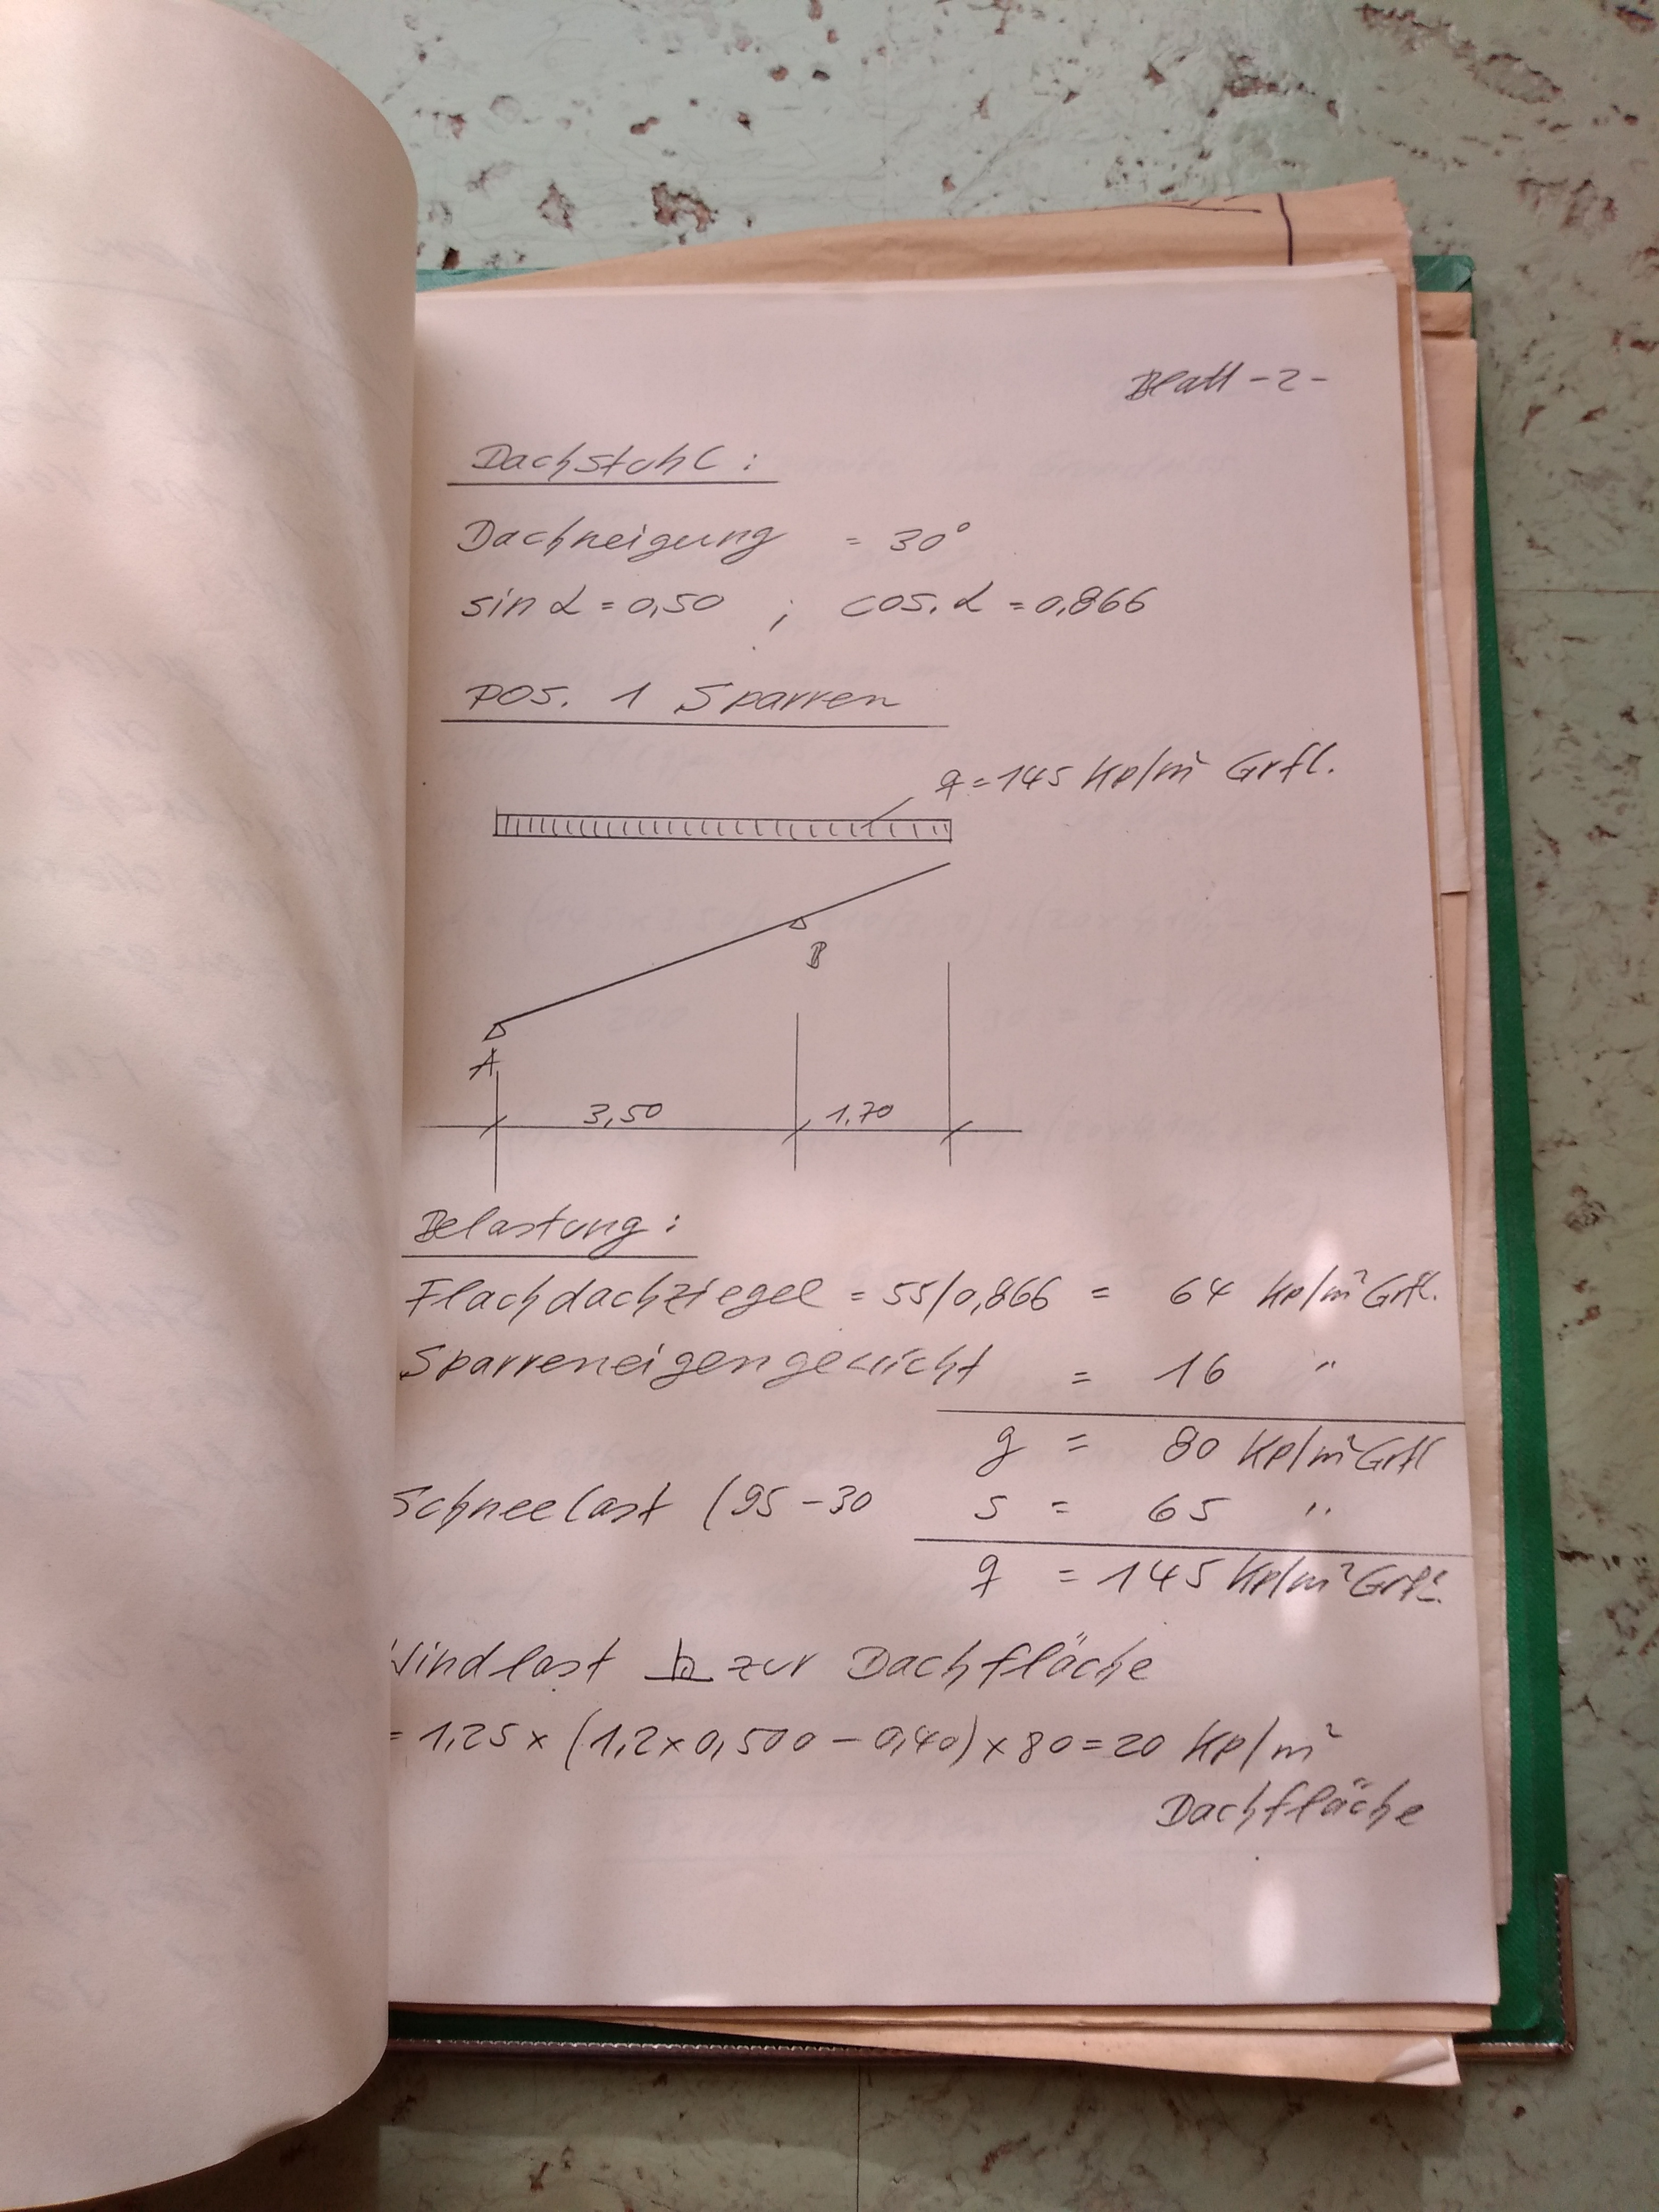 Blatt -2-
Dachstuhl:
Dachneigung = 30°
sin α = 0,50 ; cos. α = 0,866
Pos. 1 Sparren
q = 145 Kp/m² Grfl.
B
A
3,50 1,70
Belastung:
Flachdachziegel = 55/0,866 = 64 Kp/m² Grfl.
Sparreneigengewicht = 16 "
g = 80 Kp/m² Grfl
Schneelast (95-30 s = 65 "
q = 145 Kp/m² Grfl.
Windlast ⊥ zur Dachfläche
= 1,25 x (1,2 x 0,500 - 0,40) x 80 = 20 Kp/m²
Dachfläche